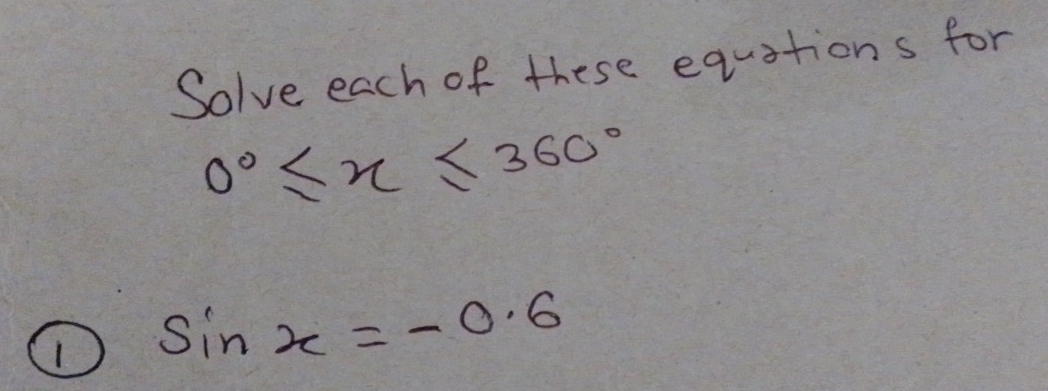 Solve each of these equations for
0° ≤ x ≤ 360°
① Sin x = -0.6